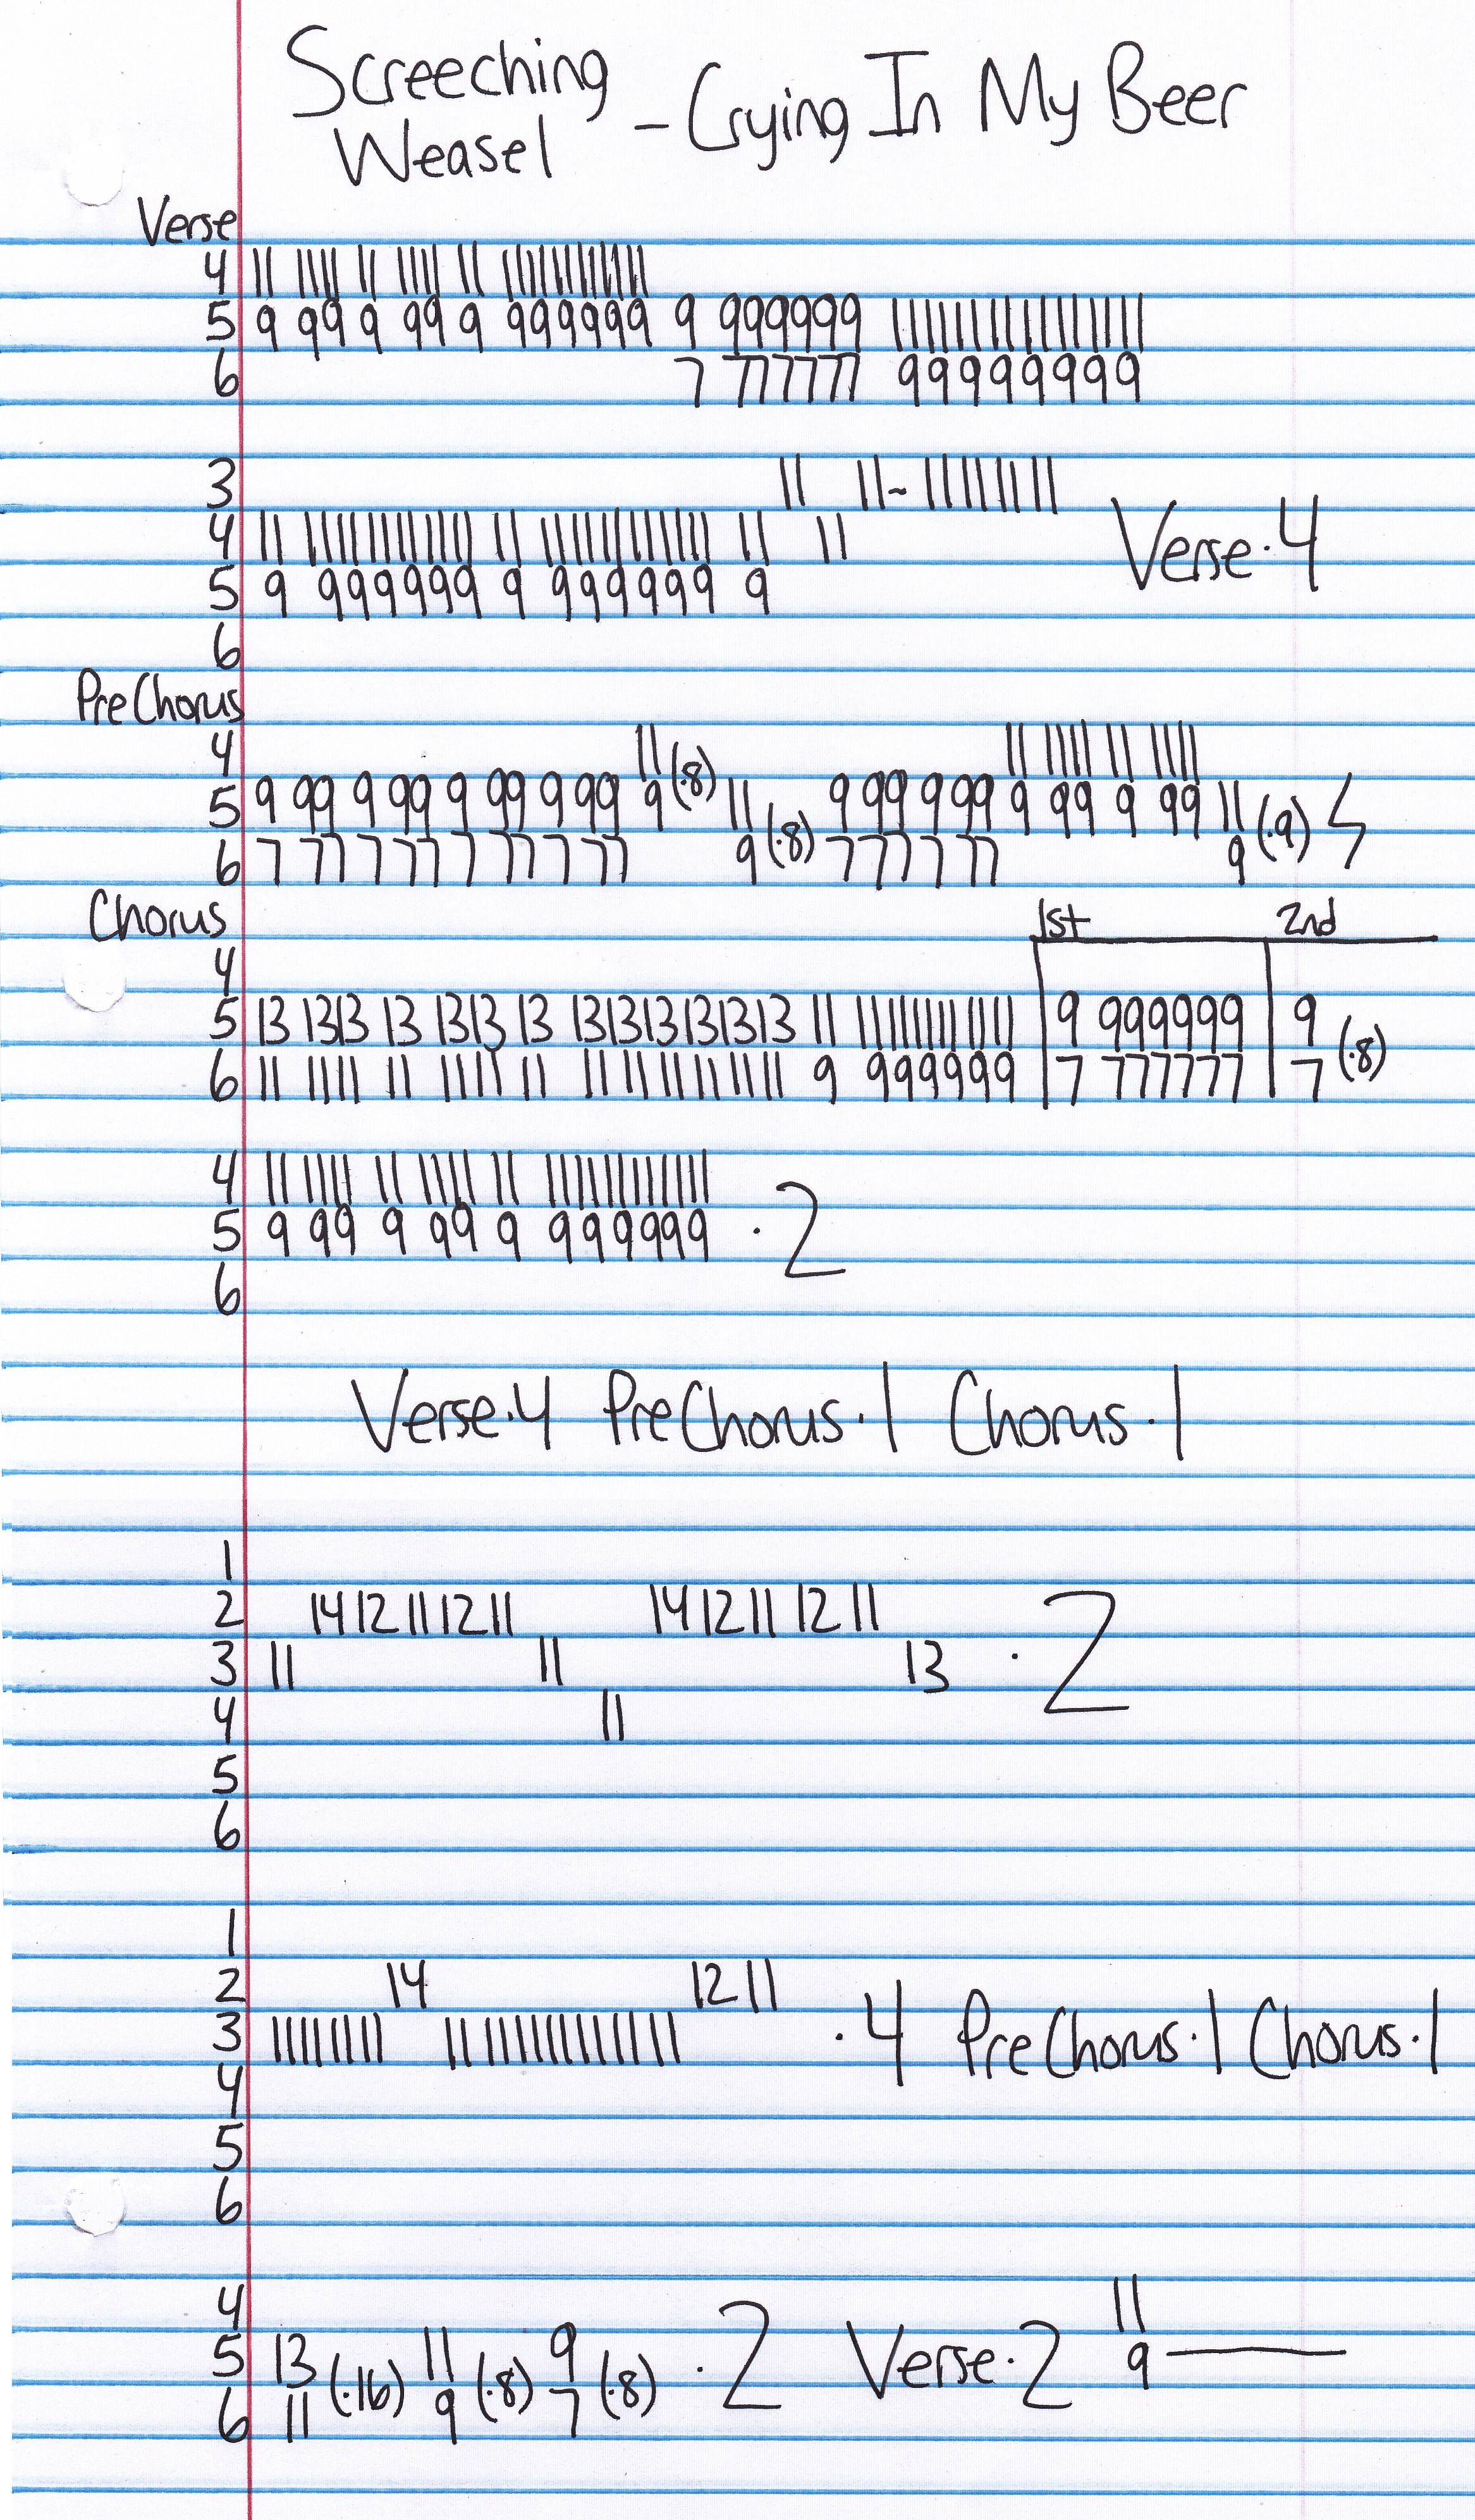 Screeching Weasel - Crying In My Beer
Verse
4 11 11 11 11 11 11 11 11 11 11 11 11 11 11
5 9 99 9 99 9 999999 9 999999 11 11 11 11 11 11 11 11
6 7 777777 99999999
3 11 11~ 11 11 11 11
4 11 11 11 11 11 11 11 11 11 11 11 11 11 11 11 11 Verse·4
5 9 999999 9 999999 9
6
PreChorus
4 11 11 11 11 11 11 11
5 9 99 9 99 9 99 9 99 9(·8) 11 9 99 9 99 9 99 9 99 11
6 7 77 7 77 7 77 7 77 9(·8) 7 77 7 77 9(·9)
Chorus 1st 2nd
4
5 13 1313 13 1313 13 131313131313 11 11 11 11 11 11 11 9 999999 9
6 11 11 11 11 11 11 11 11 11 11 11 11 11 9 999999 7 777777 7 (·8)
4 11 11 11 11 11 11 11 11 11 11 11 11 11
5 9 99 9 99 9 999999 ·2
6
Verse·4 PreChorus·1 Chorus·1
1
2 14 12 11 12 11 14 12 11 12 11
3 11 11 13 ·2
4 11
5
6
1
2 14 12 11
3 11 11 11 11 11 11 11 11 11 11 11 ·4 PreChorus·1 Chorus·1
4
5
6
4 11
5 13 (·16) 11 (·8) 9 (·8) ·2 Verse·2 9
6 11 9 7